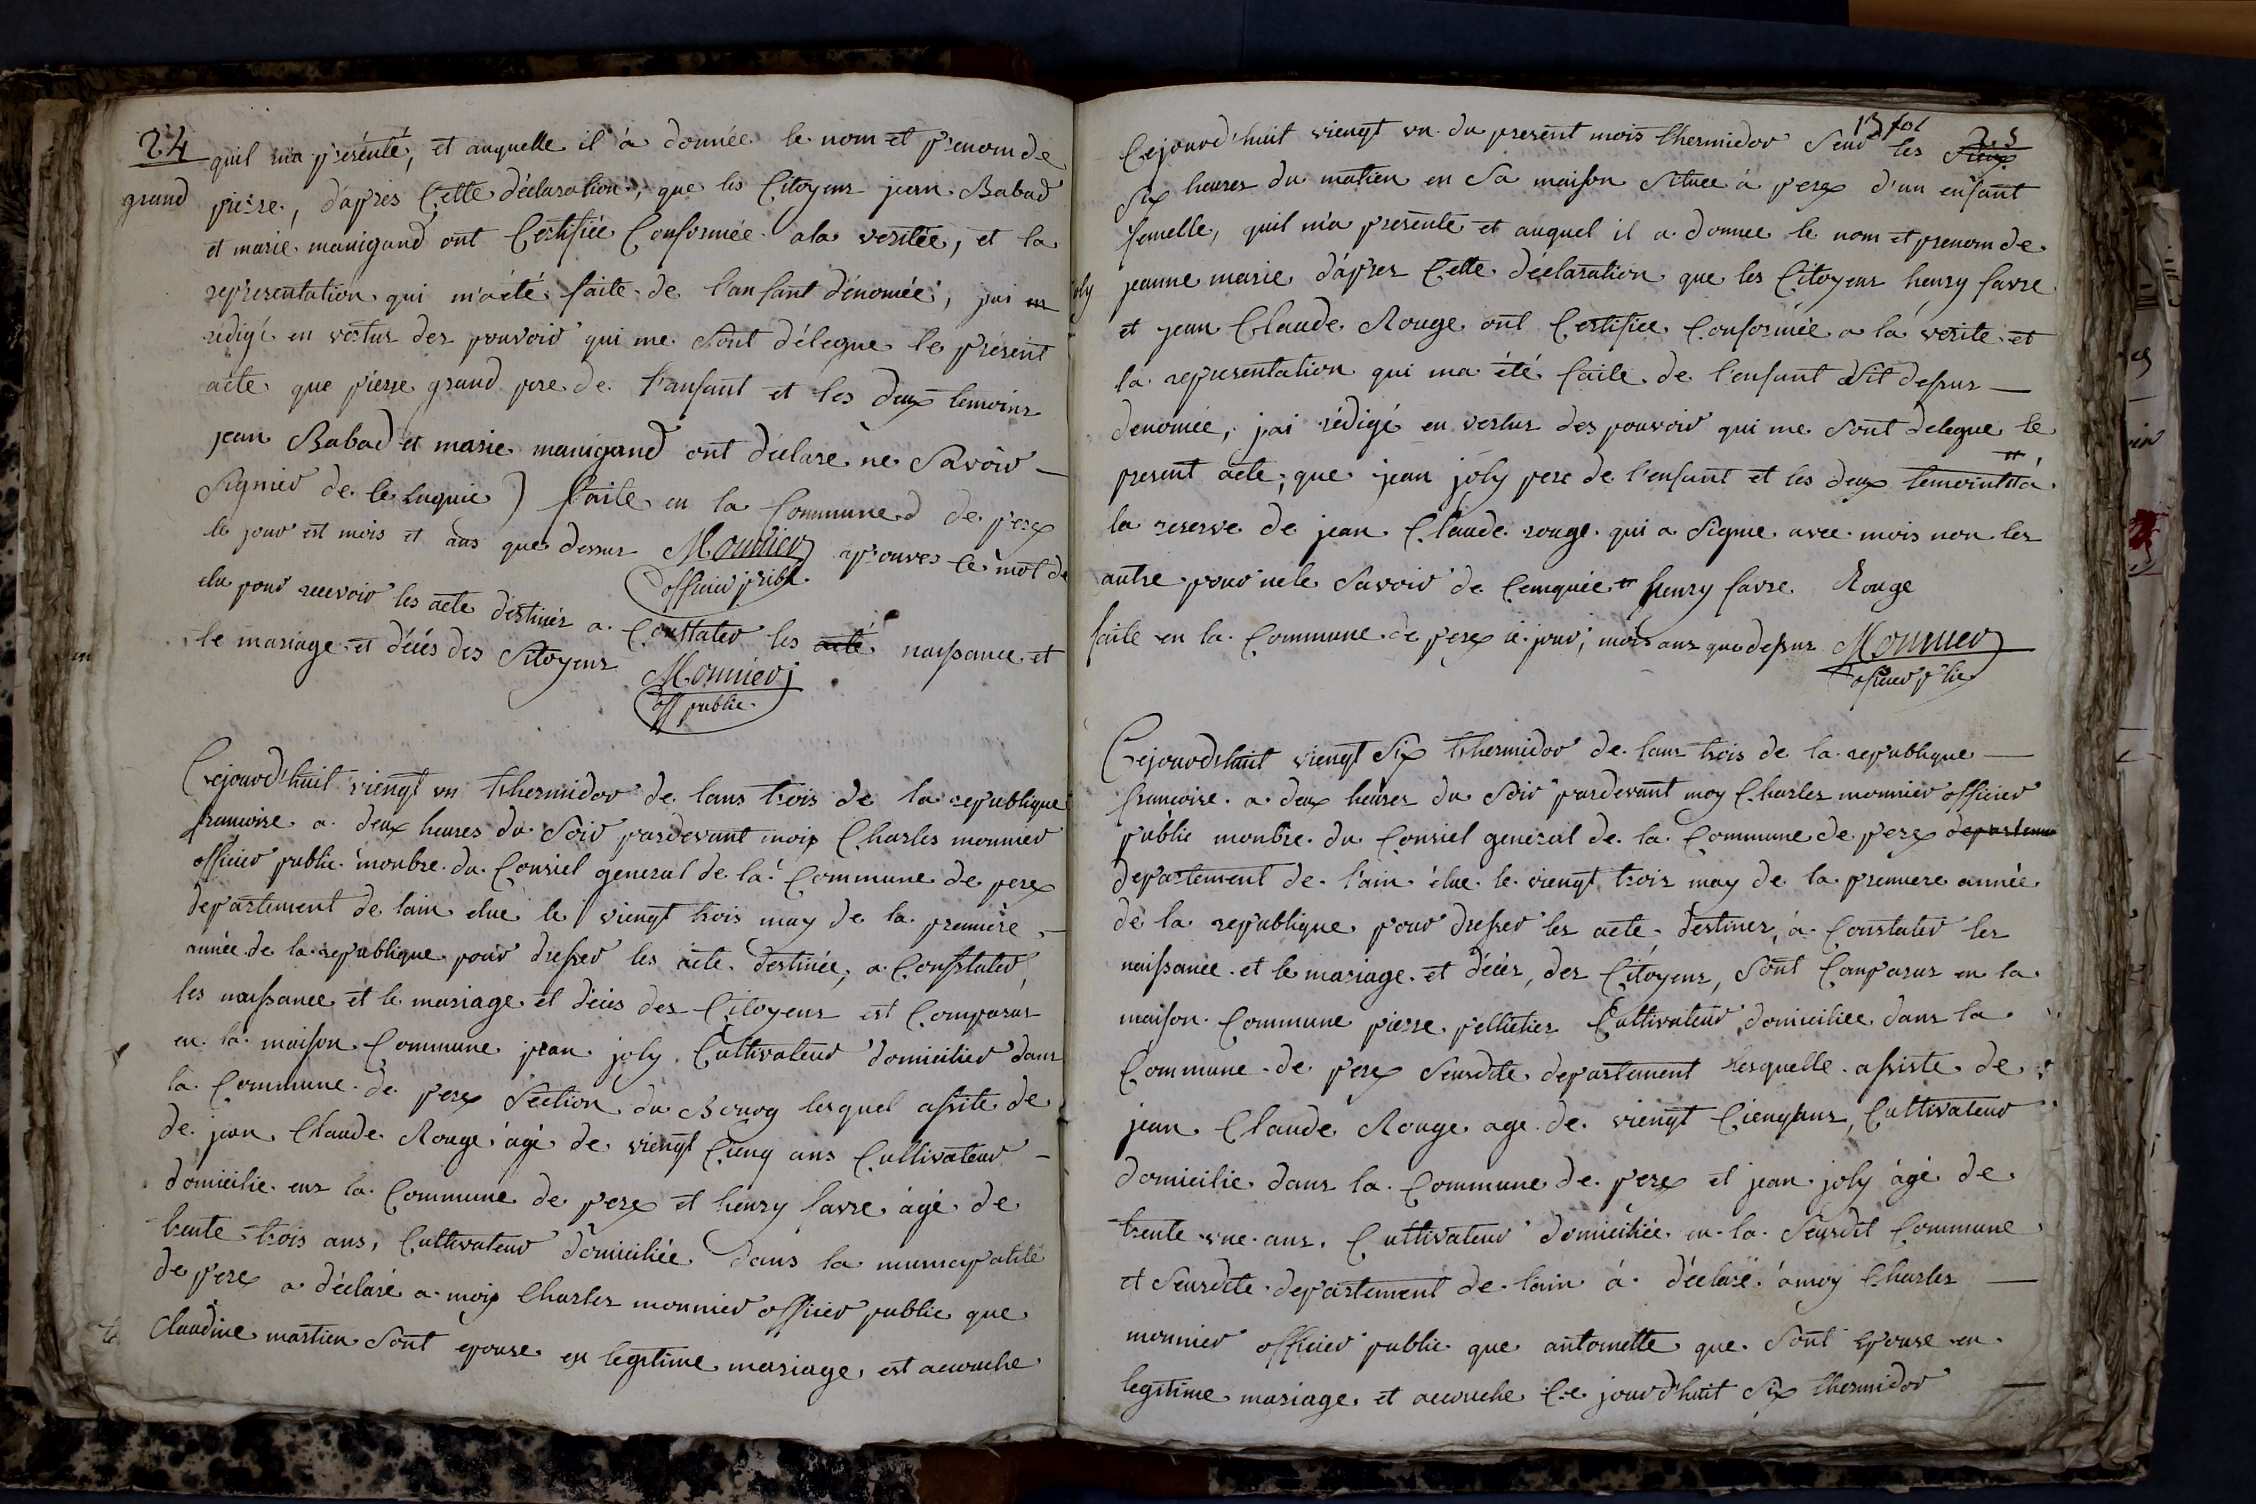 24
quil ma présénté, et auquelle il à donnée le nom et prenom de
grand
pierre, dápres Cette déclaration, que les Citoyens jean Babad
et marie manigand ont Certifiée Conformée ala veritée, et la
representation qui m'aété faite de l'anfant dénomée, jai en
rédigé en vertus des pouvoir qui me Sont délegue le présent
acte que pierre grand pere de l'anfant et les deux temoins
jean Babad et marie manigand ont déclaré ne Savoir
Signier de le luquie) faite en la Commune de perex
le jour et mois et ans que dessus Monnier aprouves le mot de
officier
elu pour recevoir les acte destinés a Conttater les acté naissance et
le mariage et décés des Sitoyens Monnier
off public
Cejourd'huit viengt un thermidor de lans trois de la republique
francoise a deux heures du Soir pardevant moix Charles monnier
officier public monbre du Consiel general de la Commune de perex
departement de lain elue le viengt trois may de la premiere
année de la republique pour dresser les acte destinée, a Consstater,
les naissance et le mariage et décés des Citoyens est Comparus
en la maison Commune jean joly Cultivateur domicilier dans
la Commune de perex Séction du Bourg lesquel assite de
de jean Claude Rouge ágé de viengt Cienq ans Cultivateur
domicilie ens la Commune de perex et henry favre ágé de
trente trois ans, Cultivateur domiciliée dans la municipalité
de perex a déclaré a moix Charles monnier officier public que
Claudine martien Sont epouse en legitime mariage est accouche
13 fol
25
Cejourd'huit viengt un du present mois thermidor Seur les Sieux
Six heures du matien en Sa maison Situee á perex d'un enfant
femelle, quil m'a presente et auquel il a donnee le nom et prenom de
joly
jeanne marie dápres Cette déclaration que les Citoyens henry favre
et jean Claude Rouge ont Certifiee Conformée a la verite et
la representation qui ma été faite de l'enfant dit dessus
denomée, jai rédigé en vertus des pouvoir qui me Sont delegue le
present acte, que jean joly pere de l'enfant et les deux temoint a
la reserve de jean Claude rouge qui a Signe avec mois non les
autre pour nele Savoir de Cenquie henry favre Rouge
faite en la Commune de perex ce jour, mois ans que dessus Monnier
Cejourdhuit viengt Six thermidor de lans trois de la republique
francoise a deux heures du Soir pardevant moy Charles monnier officier
public monbre du Consiel general de la Commune de perex departeme
departement de l'ain élue le viengt trois may de la premiere année
de la republique pour dresser les acte destines, á Constater les
naissance et le mariage et décés, des Citoyens, Sont Comparus en la
maison Commune pierre pelletier Cultivateur domiciliee dans la
Commune de perex Seusdite departement lesquelle assiste de
jean Claude Rouge age de viengt Cienq ans, Cultivateur
domicilie dans la Commune de perex et jean joly ágé de
trente une ans, Cultivateur domiciliée en la Seusdit Commune
et Seusdite departement de lain á déclaré ámoy Charles
monnier officier public que antoinette que Sont Epouse en
legitime mariage et accouche Ce jourd'huit Six thermidor